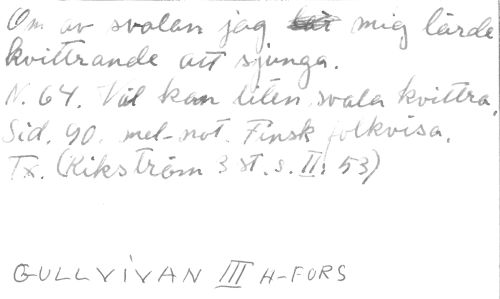 Om av svalan jag mig lärde
kvittrande att sjunga.
N. 64. Väl kan liten svala kvittra.
Sid. 90. mel-not. Finsk folkvisa.
Tx. (Rikström 3 st. s. II: 53)
GULLVIVAN III H-FORS